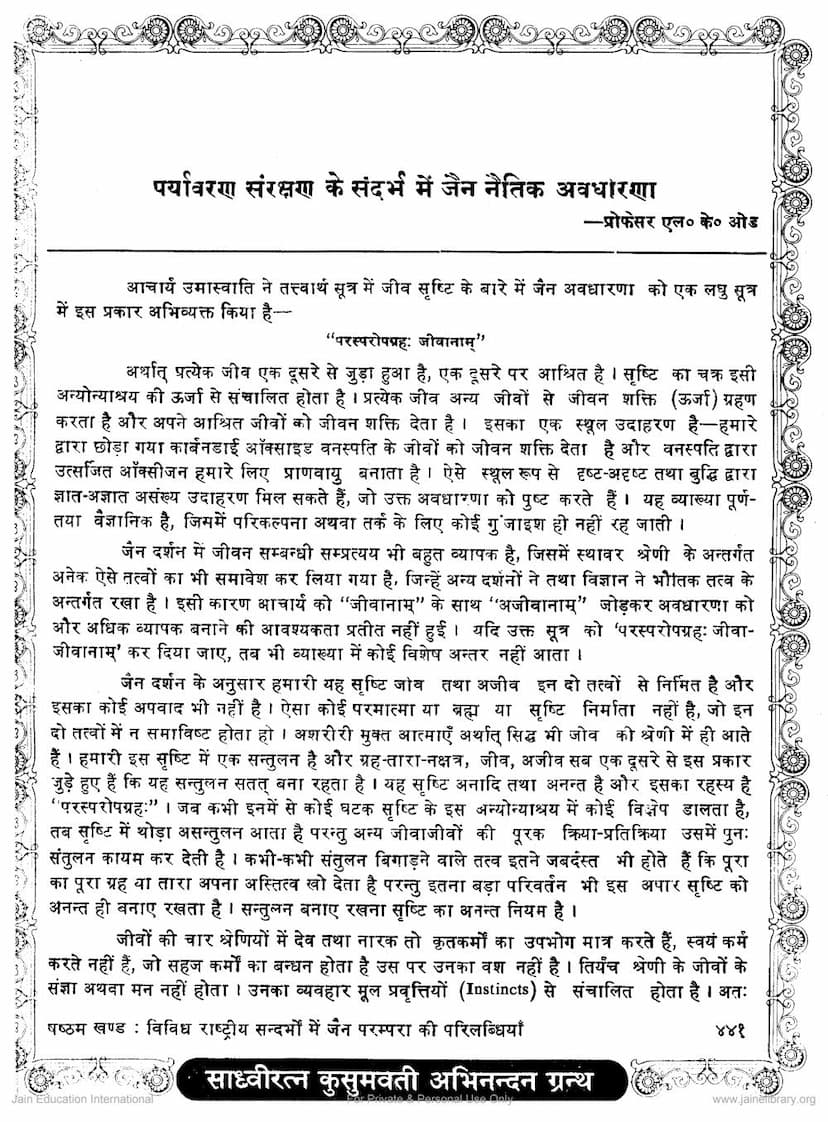 पर्यावरण संरक्षण के संदर्भ में जैन नैतिक अवधारणा
—प्रोफेसर एल० के० ओड
आचार्य उमास्वाति ने तत्त्वार्थ सूत्र में जीव सृष्टि के बारे में जैन अवधारणा को एक लघु सूत्र
में इस प्रकार अभिव्यक्त किया है—
“परस्परोपग्रहः जीवानाम्”
अर्थात् प्रत्येक जीव एक दूसरे से जुड़ा हुआ है, एक दूसरे पर आश्रित है । सृष्टि का चक्र इसी
अन्योन्याश्रय की ऊर्जा से संचालित होता है । प्रत्येक जीव अन्य जीवों से जीवन शक्ति (ऊर्जा) ग्रहण
करता है और अपने आश्रित जीवों को जीवन शक्ति देता है । इसका एक स्थूल उदाहरण है—हमारे
द्वारा छोड़ा गया कार्बनडाई ऑक्साइड वनस्पति के जीवों को जीवन शक्ति देता है और वनस्पति द्वारा
उत्सजित ऑक्सीजन हमारे लिए प्राणवायु बनाता है । ऐसे स्थूल रूप से दृष्ट-अदृष्ट तथा बुद्धि द्वारा
ज्ञात-अज्ञात असंख्य उदाहरण मिल सकते हैं, जो उक्त अवधारणा को पुष्ट करते हैं । यह व्याख्या पूर्ण-
तया वैज्ञानिक है, जिसमें परिकल्पना अथवा तर्क के लिए कोई गुंजाइश ही नहीं रह जाती ।
जैन दर्शन में जीवन सम्बन्धी सम्प्रत्यय भी बहुत व्यापक है, जिसमें स्थावर श्रेणी के अन्तर्गत
अनेक ऐसे तत्वों का भी समावेश कर लिया गया है, जिन्हें अन्य दर्शनों ने तथा विज्ञान ने भौतिक तत्व के
अन्तर्गत रखा है । इसी कारण आचार्य को “जीवानाम्” के साथ “अजीवानाम्” जोड़कर अवधारणा को
और अधिक व्यापक बनाने की आवश्यकता प्रतीत नहीं हुई । यदि उक्त सूत्र को ‘परस्परोपग्रहः जीवा-
जीवानाम्’ कर दिया जाए, तब भी व्याख्या में कोई विशेष अन्तर नहीं आता ।
जैन दर्शन के अनुसार हमारी यह सृष्टि जीव तथा अजीव इन दो तत्वों से निर्मित है और
इसका कोई अपवाद भी नहीं है । ऐसा कोई परमात्मा या ब्रह्म या सृष्टि निर्माता नहीं है, जो इन
दो तत्वों में न समाविष्ट होता हो । अशरीरी मुक्त आत्माएँ अर्थात् सिद्ध भी जीव की श्रेणी में ही आते
हैं । हमारी इस सृष्टि में एक सन्तुलन है और ग्रह-तारा-नक्षत्र, जीव, अजीव सब एक दूसरे से इस प्रकार
जुड़े हुए हैं कि यह सन्तुलन सतत् बना रहता है । यह सृष्टि अनादि तथा अनन्त है और इसका रहस्य है
“परस्परोपग्रहः” । जब कभी इनमें से कोई घटक सृष्टि के इस अन्योन्याश्रय में कोई विक्षेप डालता है,
तब सृष्टि में थोड़ा असन्तुलन आता है परन्तु अन्य जीवाजीवों की पूरक क्रिया-प्रतिक्रिया उसमें पुनः
संतुलन कायम कर देती है । कभी-कभी संतुलन बिगाड़ने वाले तत्व इतने जबर्दस्त भी होते हैं कि पूरा
का पूरा ग्रह या तारा अपना अस्तित्व खो देता है परन्तु इतना बड़ा परिवर्तन भी इस अपार सृष्टि को
अनन्त ही बनाए रखता है । सन्तुलन बनाए रखना सृष्टि का अनन्त नियम है ।
जीवों की चार श्रेणियों में देव तथा नारक तो कृतकर्मों का उपभोग मात्र करते हैं, स्वयं कर्म
करते नहीं हैं, जो सहज कर्मों का बन्धन होता है उस पर उनका वश नहीं है । तिर्यंच श्रेणी के जीवों के
संज्ञा अथवा मन नहीं होता । उनका व्यवहार मूल प्रवृत्तियों (Instincts) से संचालित होता है । अतः
षष्ठम खण्ड : विविध राष्ट्रीय सन्दर्भों में जैन परम्परा की परिलब्धियाँ ४४१
साध्वीरत्न कुसुमवती अभिनन्दन ग्रन्थ
Jain Education International For Private & Personal Use Only www.jainelibrary.org